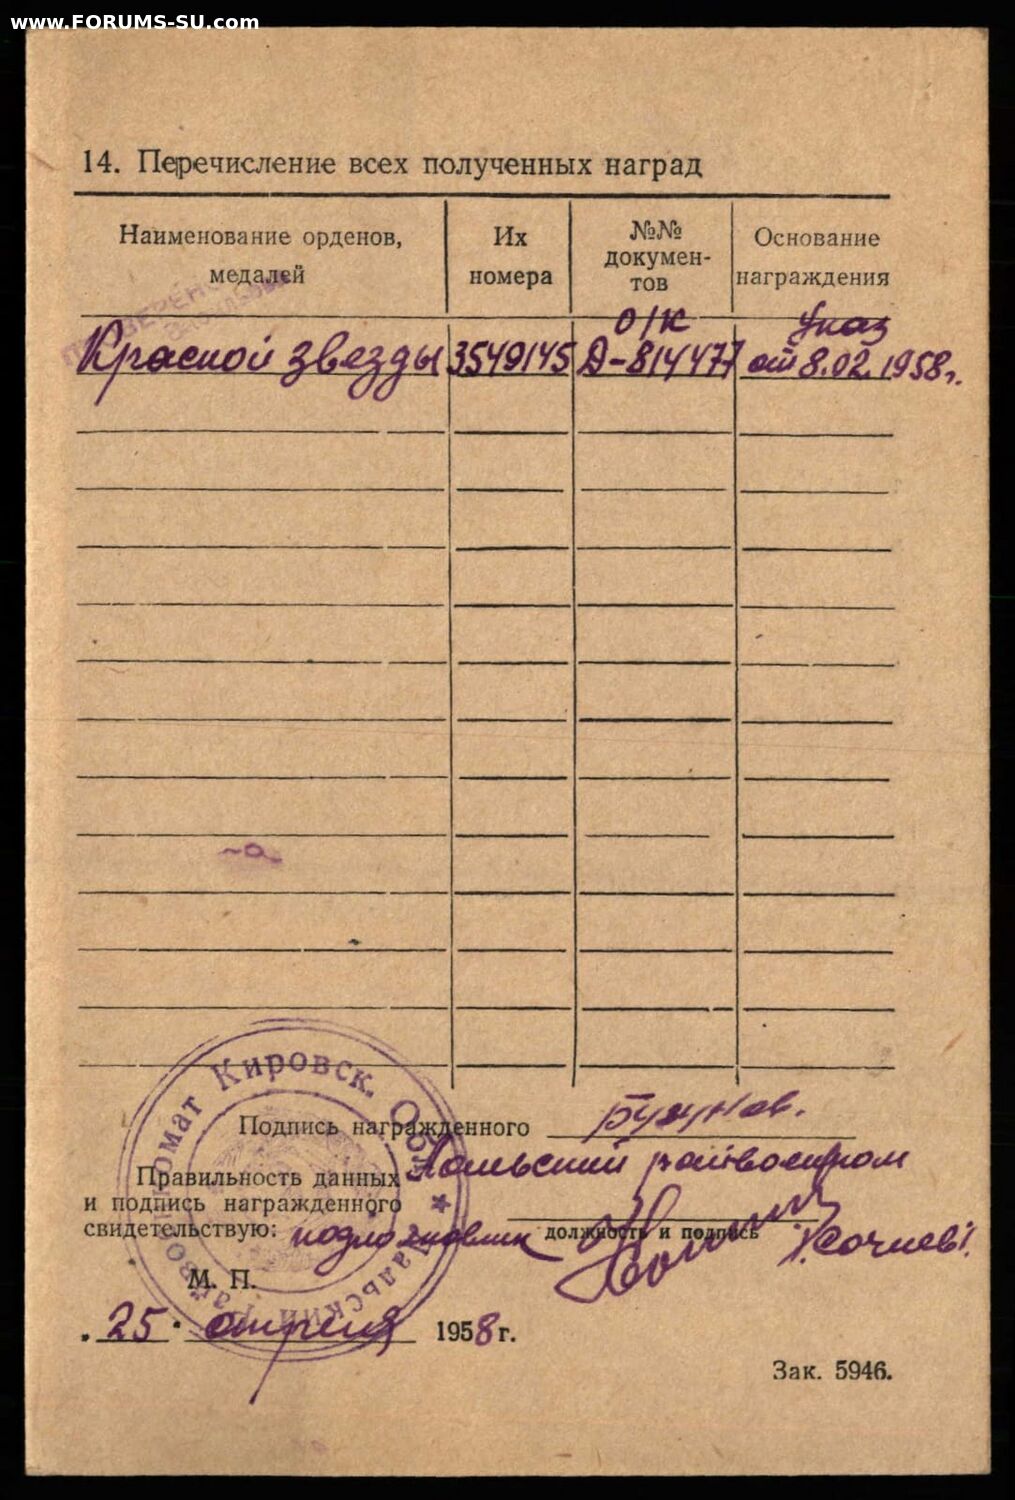 www.FORUMS-SU.com
14. Перечисление всех полученных наград
Наименование орденов, медалей
Их номера
№№ докумен-тов
Основание награждения
О/К
Указ
Красной звезды 3549145 Д-814477 от 8.02.1958г.
Подпись награжденного
Правильность данных Лальский райвоенком
и подпись награжденного
свидетельствую: подполковник
должность и подпись
М. П.
"25" апреля 1958 г.
Кировск. Обл.
Лальский Райвоенкомат
Зак. 5946.